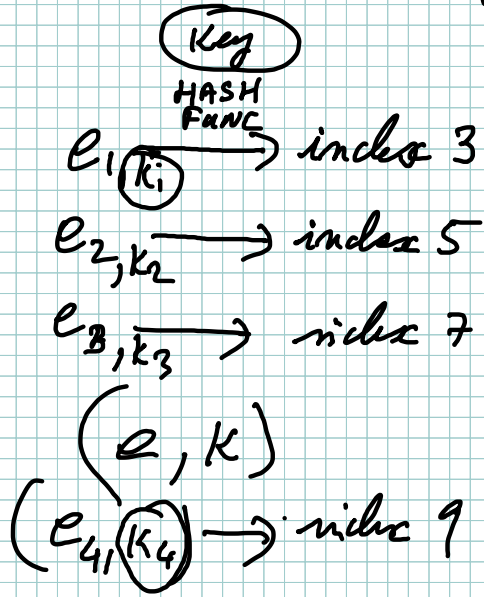 Key
HASH
FUNC
e₁, K₁ → index 3
e₂, K₂ → index 5
e₃, K₃ → index 7
(e, K)
(e₄, K₄) → index 9